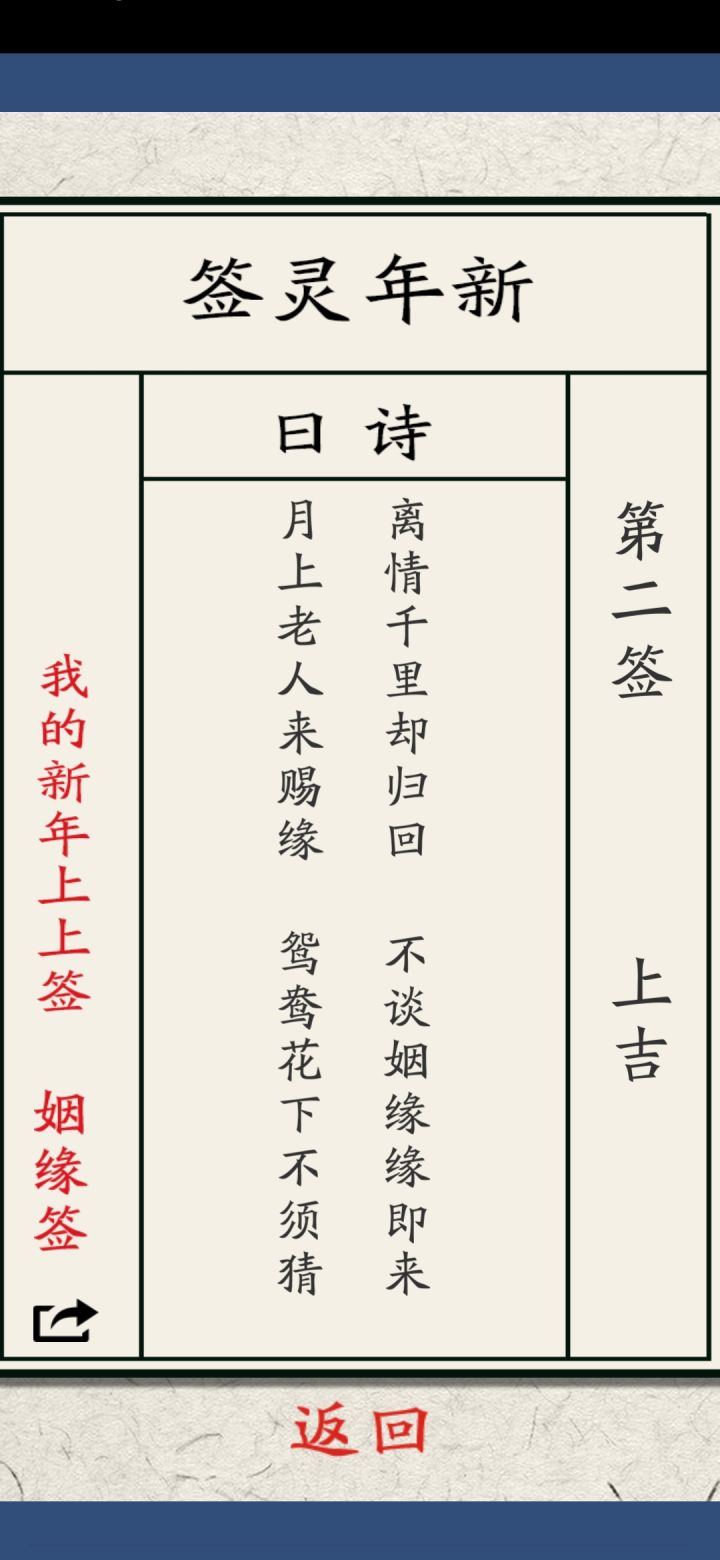 新年灵签
第二签 上吉
诗曰
离情千里却归回 不谈姻缘缘即来
月上老人来赐缘 鸳鸯花下不须猜
我的新年上上签 姻缘签
返回